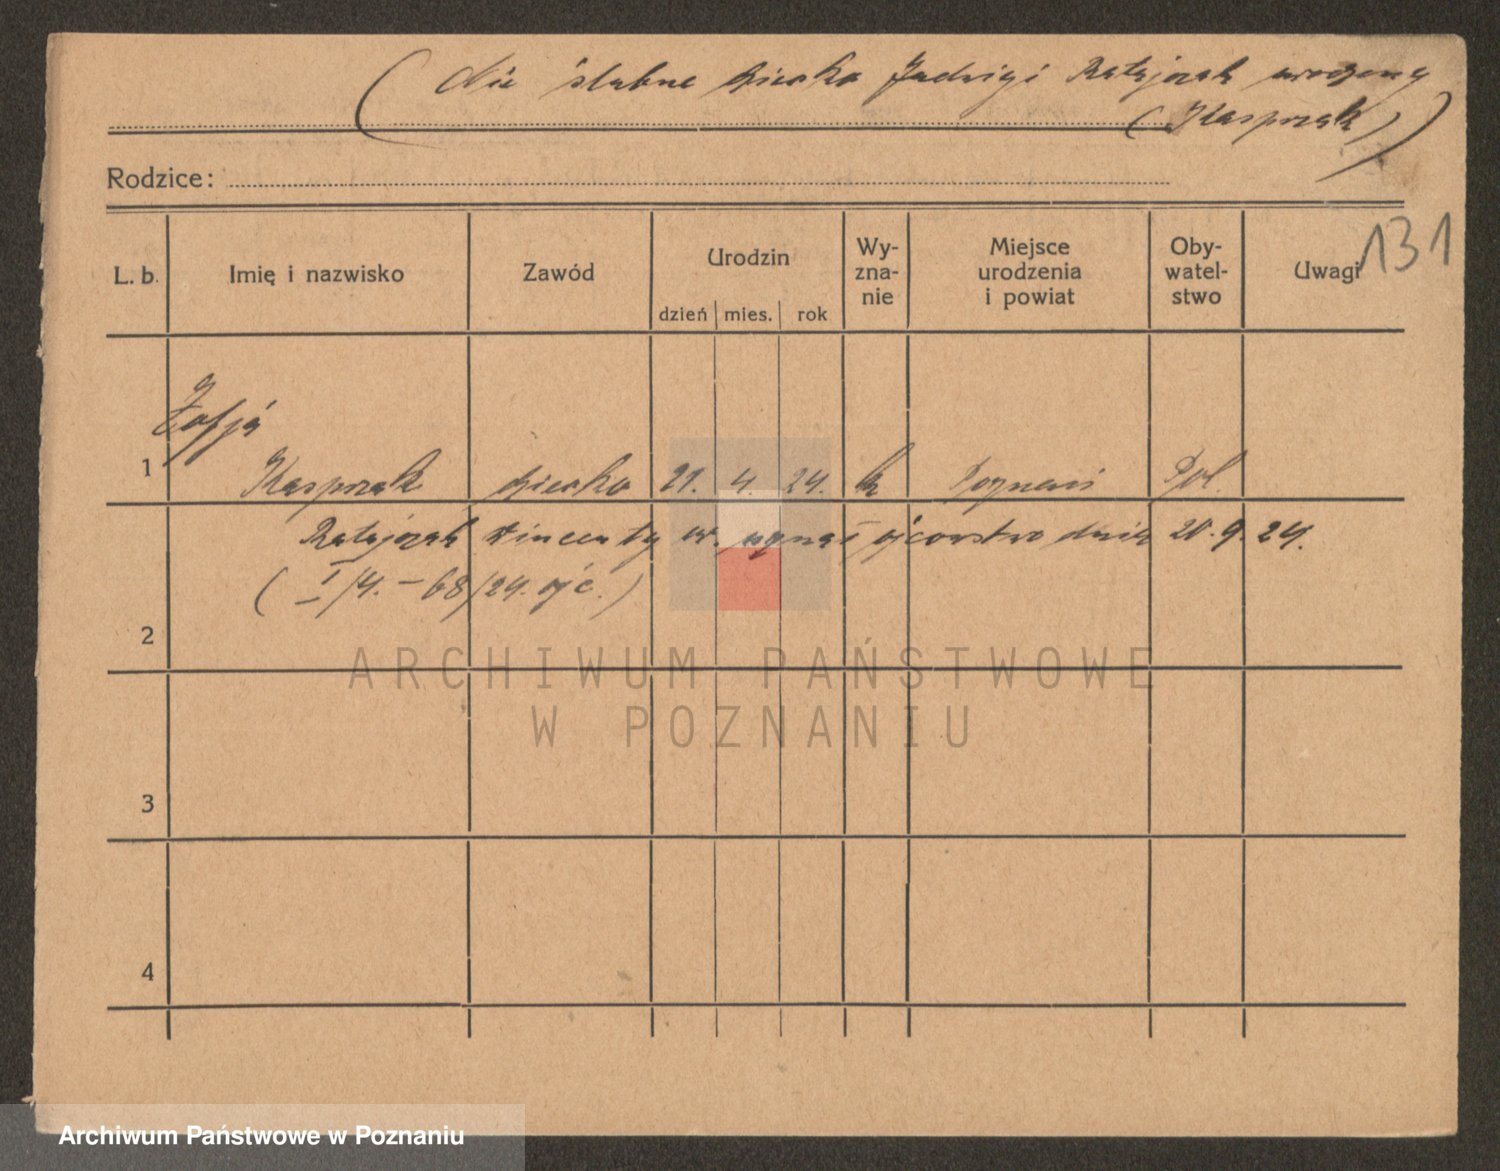 ( Nie ślubne dziecko Jadwigi Ratajczak urodzony
( Kasprzak ) )
Rodzice:
131
L. b. Imię i nazwisko Zawód Urodzin dzień mies. rok Wy-zna-nie Miejsce urodzenia i powiat Oby-watel-stwo Uwagi
Zofja
1 Kasprzak dziecko 21. 4. 24. k Poznań Pol.
Ratajczak Wincenty uznał ojcostwo dnia 20.9.24.
( I/4. – 68/24. ojc. )
2
3
4
ARCHIWUM PAŃSTWOWE
W POZNANIU
Archiwum Państwowe w Poznaniu